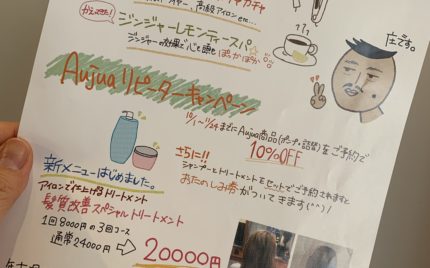 高級アイロン etc...
かえってきた!
ジンジャーレモンティースパ
ジンジャーの効果で心も頭もぽかぽか
庄です。
Aujuaリピーターキャンペーン
10/1~11/24までにAujua商品(ポンプ・詰替)をご予約で
10%OFF
さらに!!
シャンプーとトリートメントをセットでご予約されますと
おたのしみ袋がついてきます(^^)/
新メニューはじめました。
アイロンで仕上げるトリートメント
髪質改善スペシャルトリートメント
1回8000円の3回コース
通常24000円→20000円